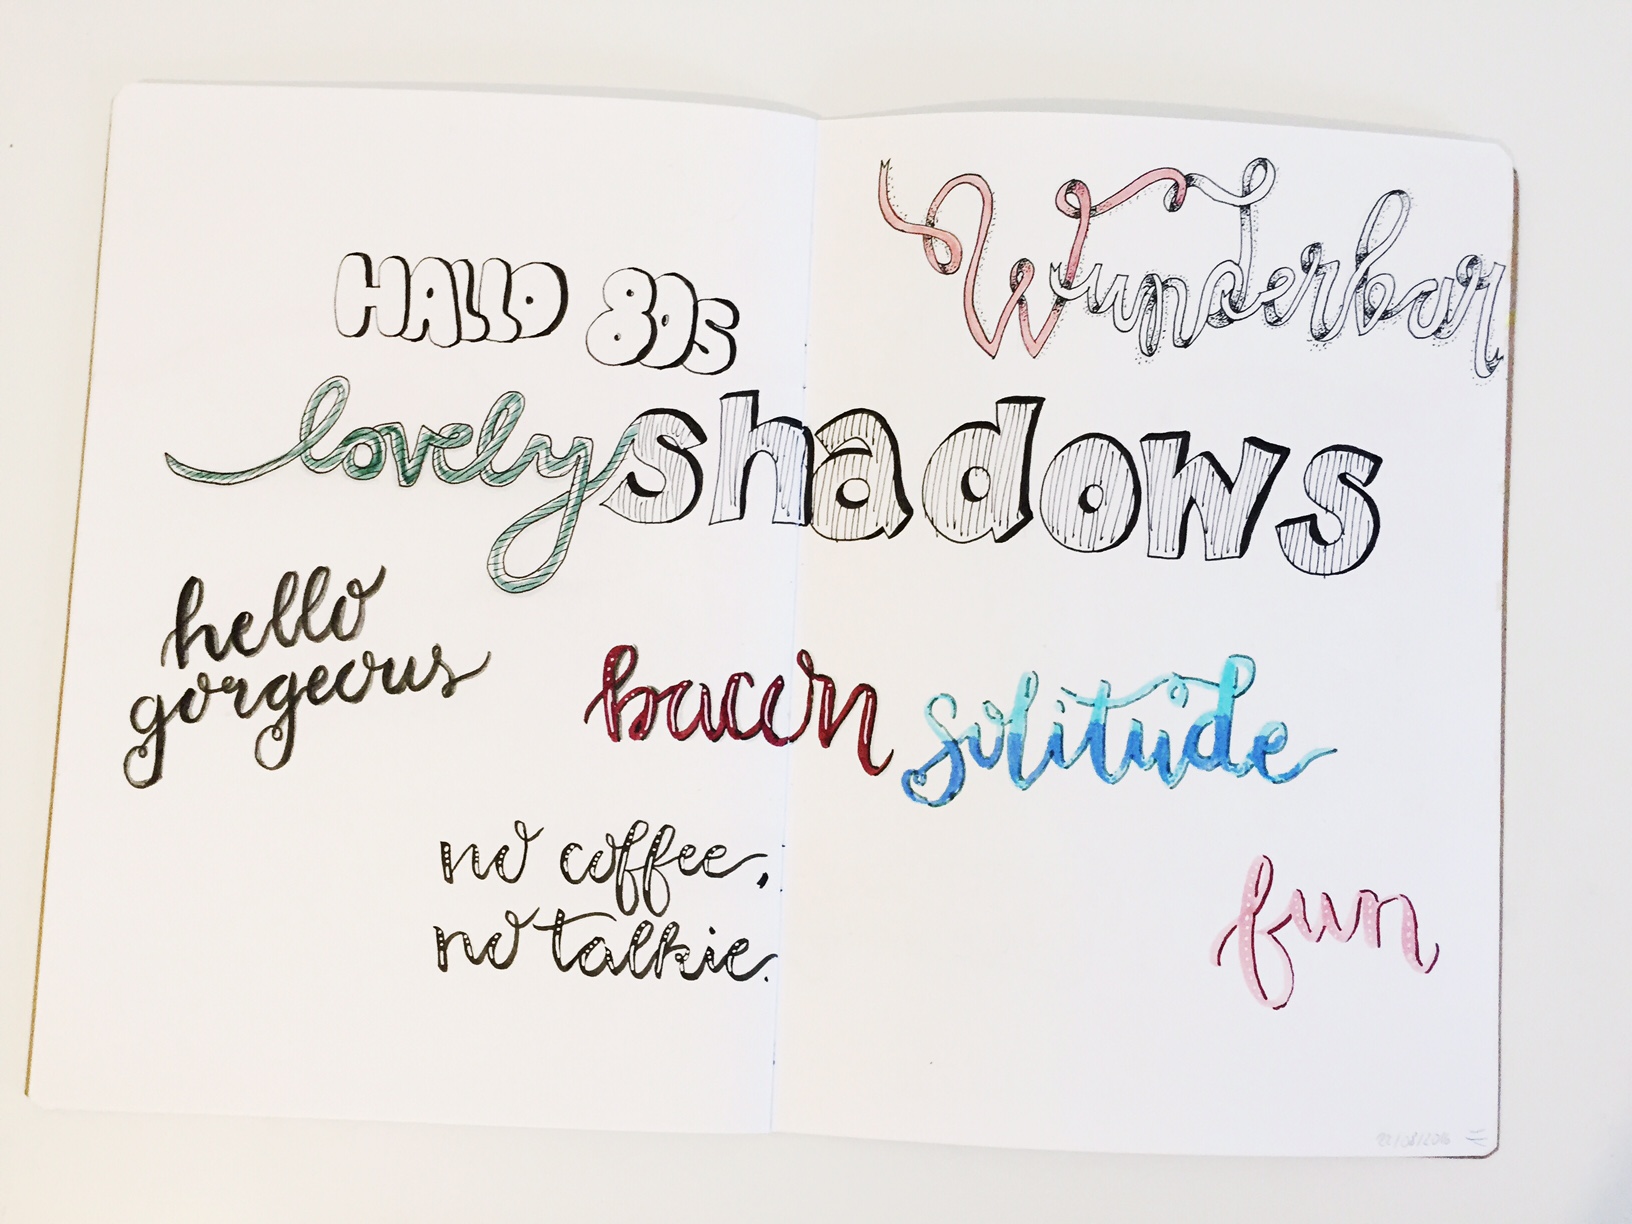 Wunderbar
HALLO 80s
lovely shadows
hello
gorgeous
bacon solitude
no coffee,
no talkie.
fun